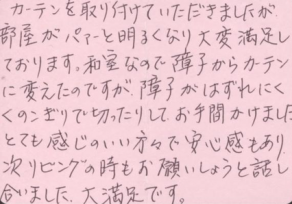 カーテンを取り付けていただきましたが
部屋がパァーと明るくなり大変満足し
ております。和室なので障子からカーテン
に変えたのですが、障子がはずれにく
くのこぎりで切ったりしてお手間かけました
とても感じのいい方々で安心感もあり
次リビングの時もお願いしようと話し
合いました。大満足です。